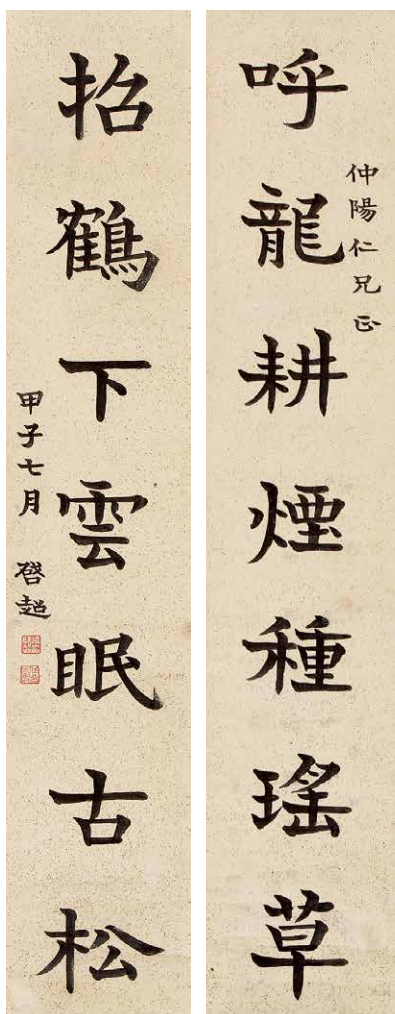 呼龍耕煙種瑤草
仲陽仁兄正
招鶴下雲眠古松
甲子七月 啓超